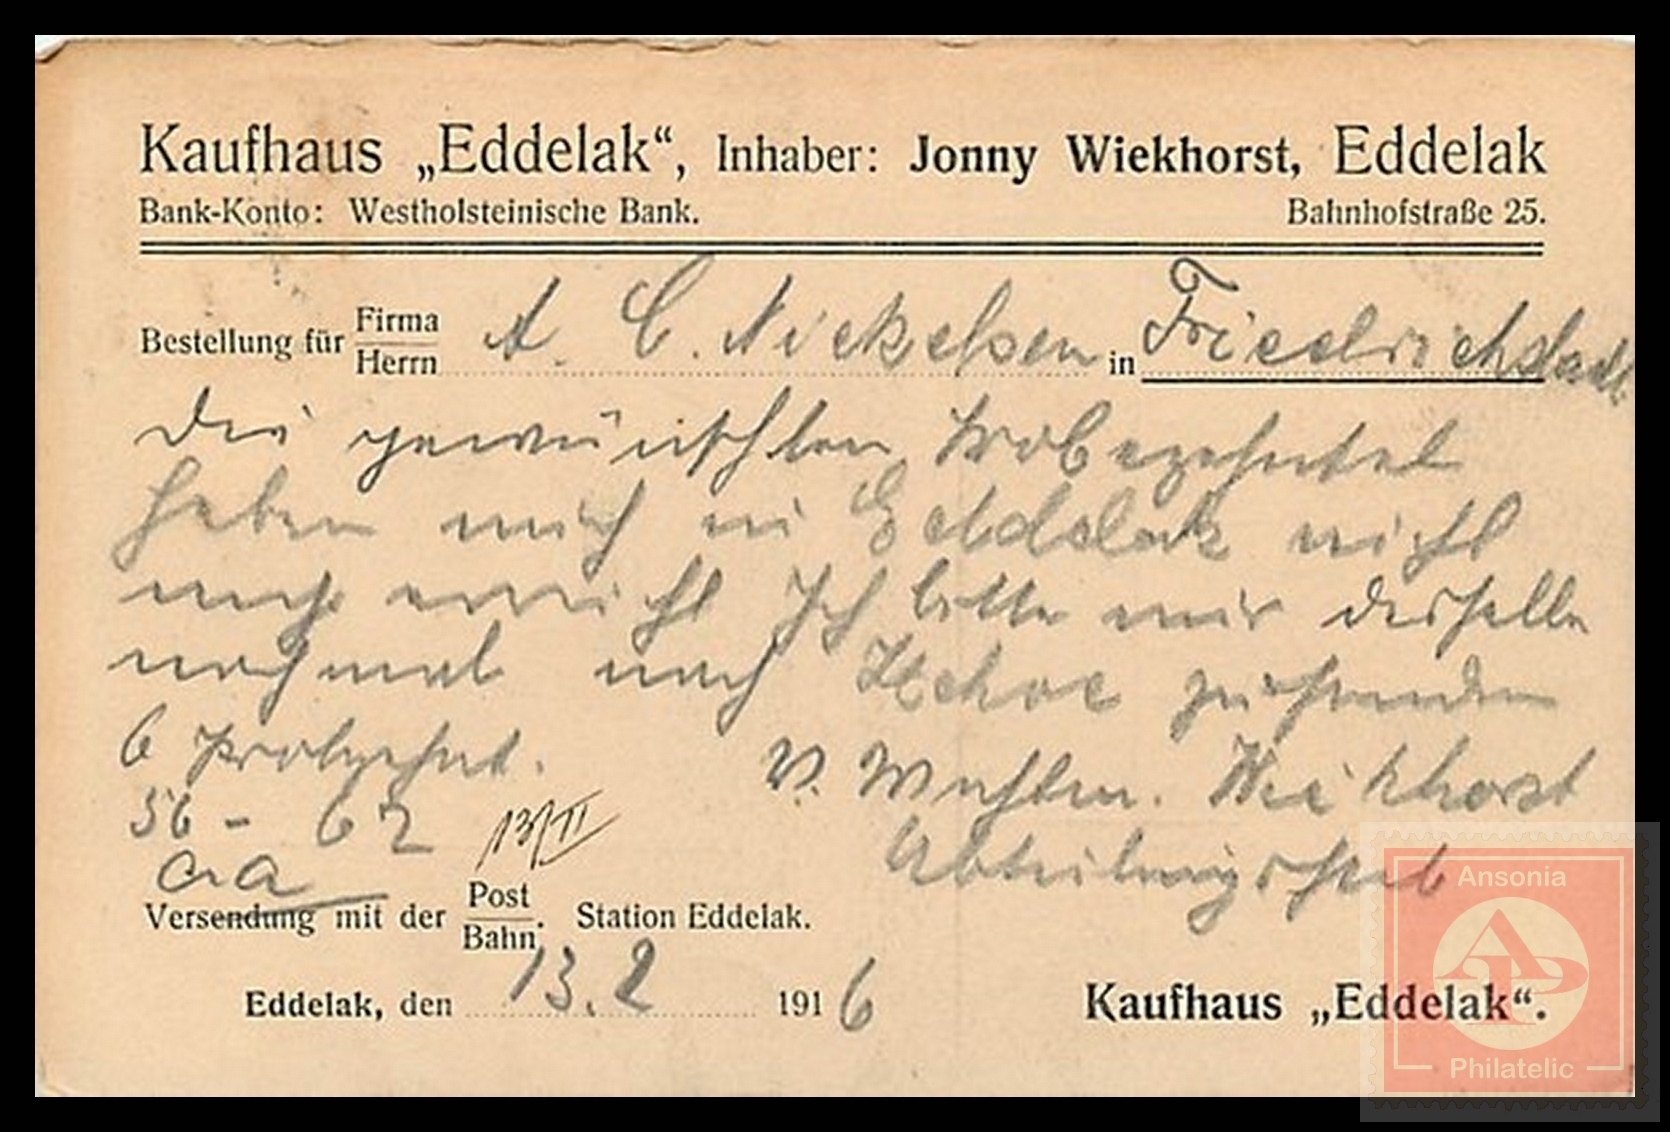 Kaufhaus „Eddelak“, Inhaber: Jonny Wiekhorst, Eddelak
Bank-Konto: Westholsteinische Bank. Bahnhofstraße 25.
Bestellung für Firma Herrn A. C. Nickelsen in Friedrichstadt
Die gewünschten
haben mich in Eddelak nicht
mehr erreicht Ich bitte mir dieselbe
nochmal nach Itzehoe zu senden
6
56 - 62 13/II
V. Wiekhorst
Versendung mit der Post Bahn. Station Eddelak.
Eddelak, den 13.2 1916
Kaufhaus „Eddelak“.
Ansonia
AP
Philatelic